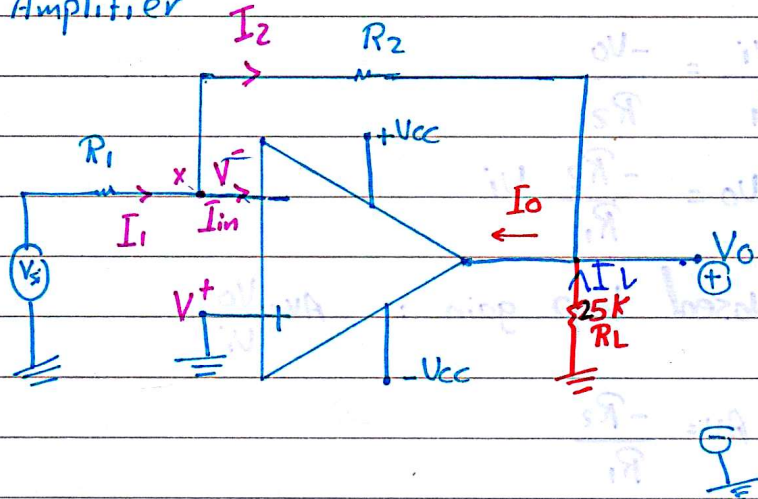 Amplifier
I2
R2
+Vcc
R1
x V-
I1
Iin
Io
Vs
V+
-
+
Vo
+
IL
25K
RL
-Vcc
-